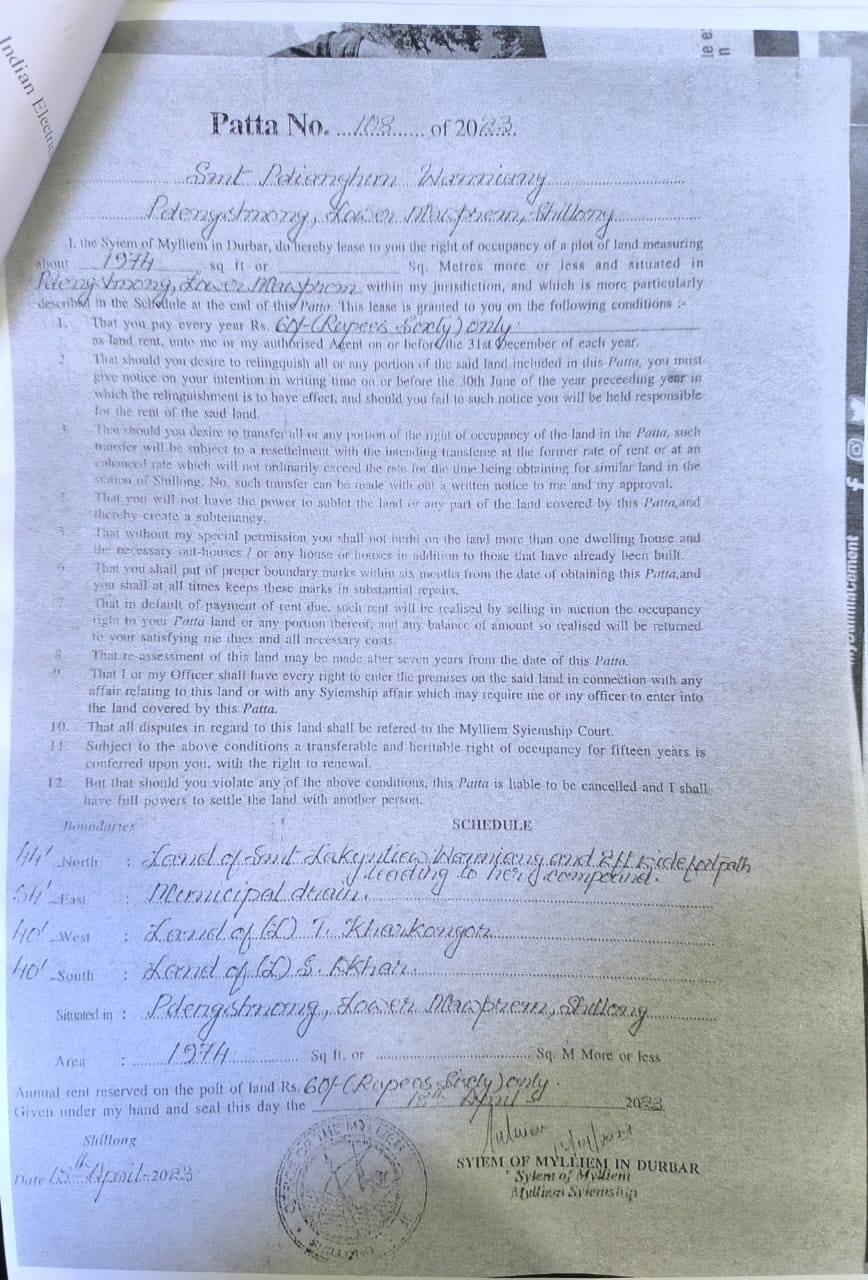 Indian Electric
te e:
n
Patta No. ...108...... of 2023.
Smt Pdianghun Warmiang
Pdengshnong, Lower Mawprem, Shillong
I. the Syiem of Mylliem in Durbar, do hereby lease to you the right of occupancy of a plot of land measuring
about 1974 sq ft or Sq. Metres more or less and situated in
Pdengshnong, Lower Mawprem within my jurisdiction, and which is more particularly
described in the Schedule at the end of this Patta. This lease is granted to you on the following conditions :-
1. That you pay every year Rs. 60/-(Rupees Sixty) only
as land rent, unto me or my authorised Agent on or before the 31st December of each year.
2. That should you desire to relingquish all or any portion of the said land included in this Patta, you must
give notice on your intention in writing time on or before the 30th June of the year preceeding year in
which the relinguishment is to have effect, and should you fail to such notice you will be held responsible
for the rent of the said land.
3. That should you desire to transfer all or any portion of the right of occupancy of the land in the Patta, such
transfer will be subject to a resettelment with the intending transferee at the former rate of rent or at an
enhanced rate which will not ordinarily exceed the rate for the time being obtaining for similar land in the
station of Shillong. No, such transfer can be made with out a written notice to me and my approval.
4. That you will not have the power to sublet the land or any part of the land covered by this Patta,and
thereby create a subtenancy.
5. That without my special permission you shall not build on the land more than one dwelling house and
the necessary out-houses / or any house or houses in addition to those that have already been built.
6. That you shall put of proper boundary marks within six months from the date of obtaining this Patta,and
you shall at all times keeps these marks in substantial repairs.
7. That in default of payment of rent due, such rent will be realised by selling in auction the occupancy
right to your Patta land or any portion thereof, and any balance of amount so realised will be returned
to your satisfying me dues and all necessary costs.
8. That re-assessment of this land may be made after seven years from the date of this Patta.
9. That I or my Officer shall have every right to enter the premises on the said land in connection with any
affair relating to this land or with any Syiemship affair which may require me or my officer to enter into
the land covered by this Patta.
10. That all disputes in regard to this land shall be refered to the Mylliem Syiemship Court.
11. Subject to the above conditions a transferable and heritable right of occupancy for fifteen years is
conferred upon you, with the right to renewal.
12. But that should you violate any of the above conditions, this Patta is liable to be cancelled and I shall
have full powers to settle the land with another person.
Boundaries SCHEDULE
44' North : Land of Smt Lakyntiew Warmiang and 8ft wide footpath
leading to her compound.
54' East : Municipal drain.
40' West : Land of (L) T. Kharkongor
40' South : Land of (L) S. Dkhar.
Situated in : Pdengshnong, Lower Mawprem, Shillong
Area : 1974 Sq ft. or Sq. M More or less
Annual rent reserved on the polt of land Rs. 60/-(Rupees Sixty) only.
Given under my hand and seal this day the 15th April 2023
Shillong
Date 15th April-2023
SYIEM OF MYLLIEM IN DURBAR
Syiem of Mylliem
Mylliem Syiemship
SHILLONG